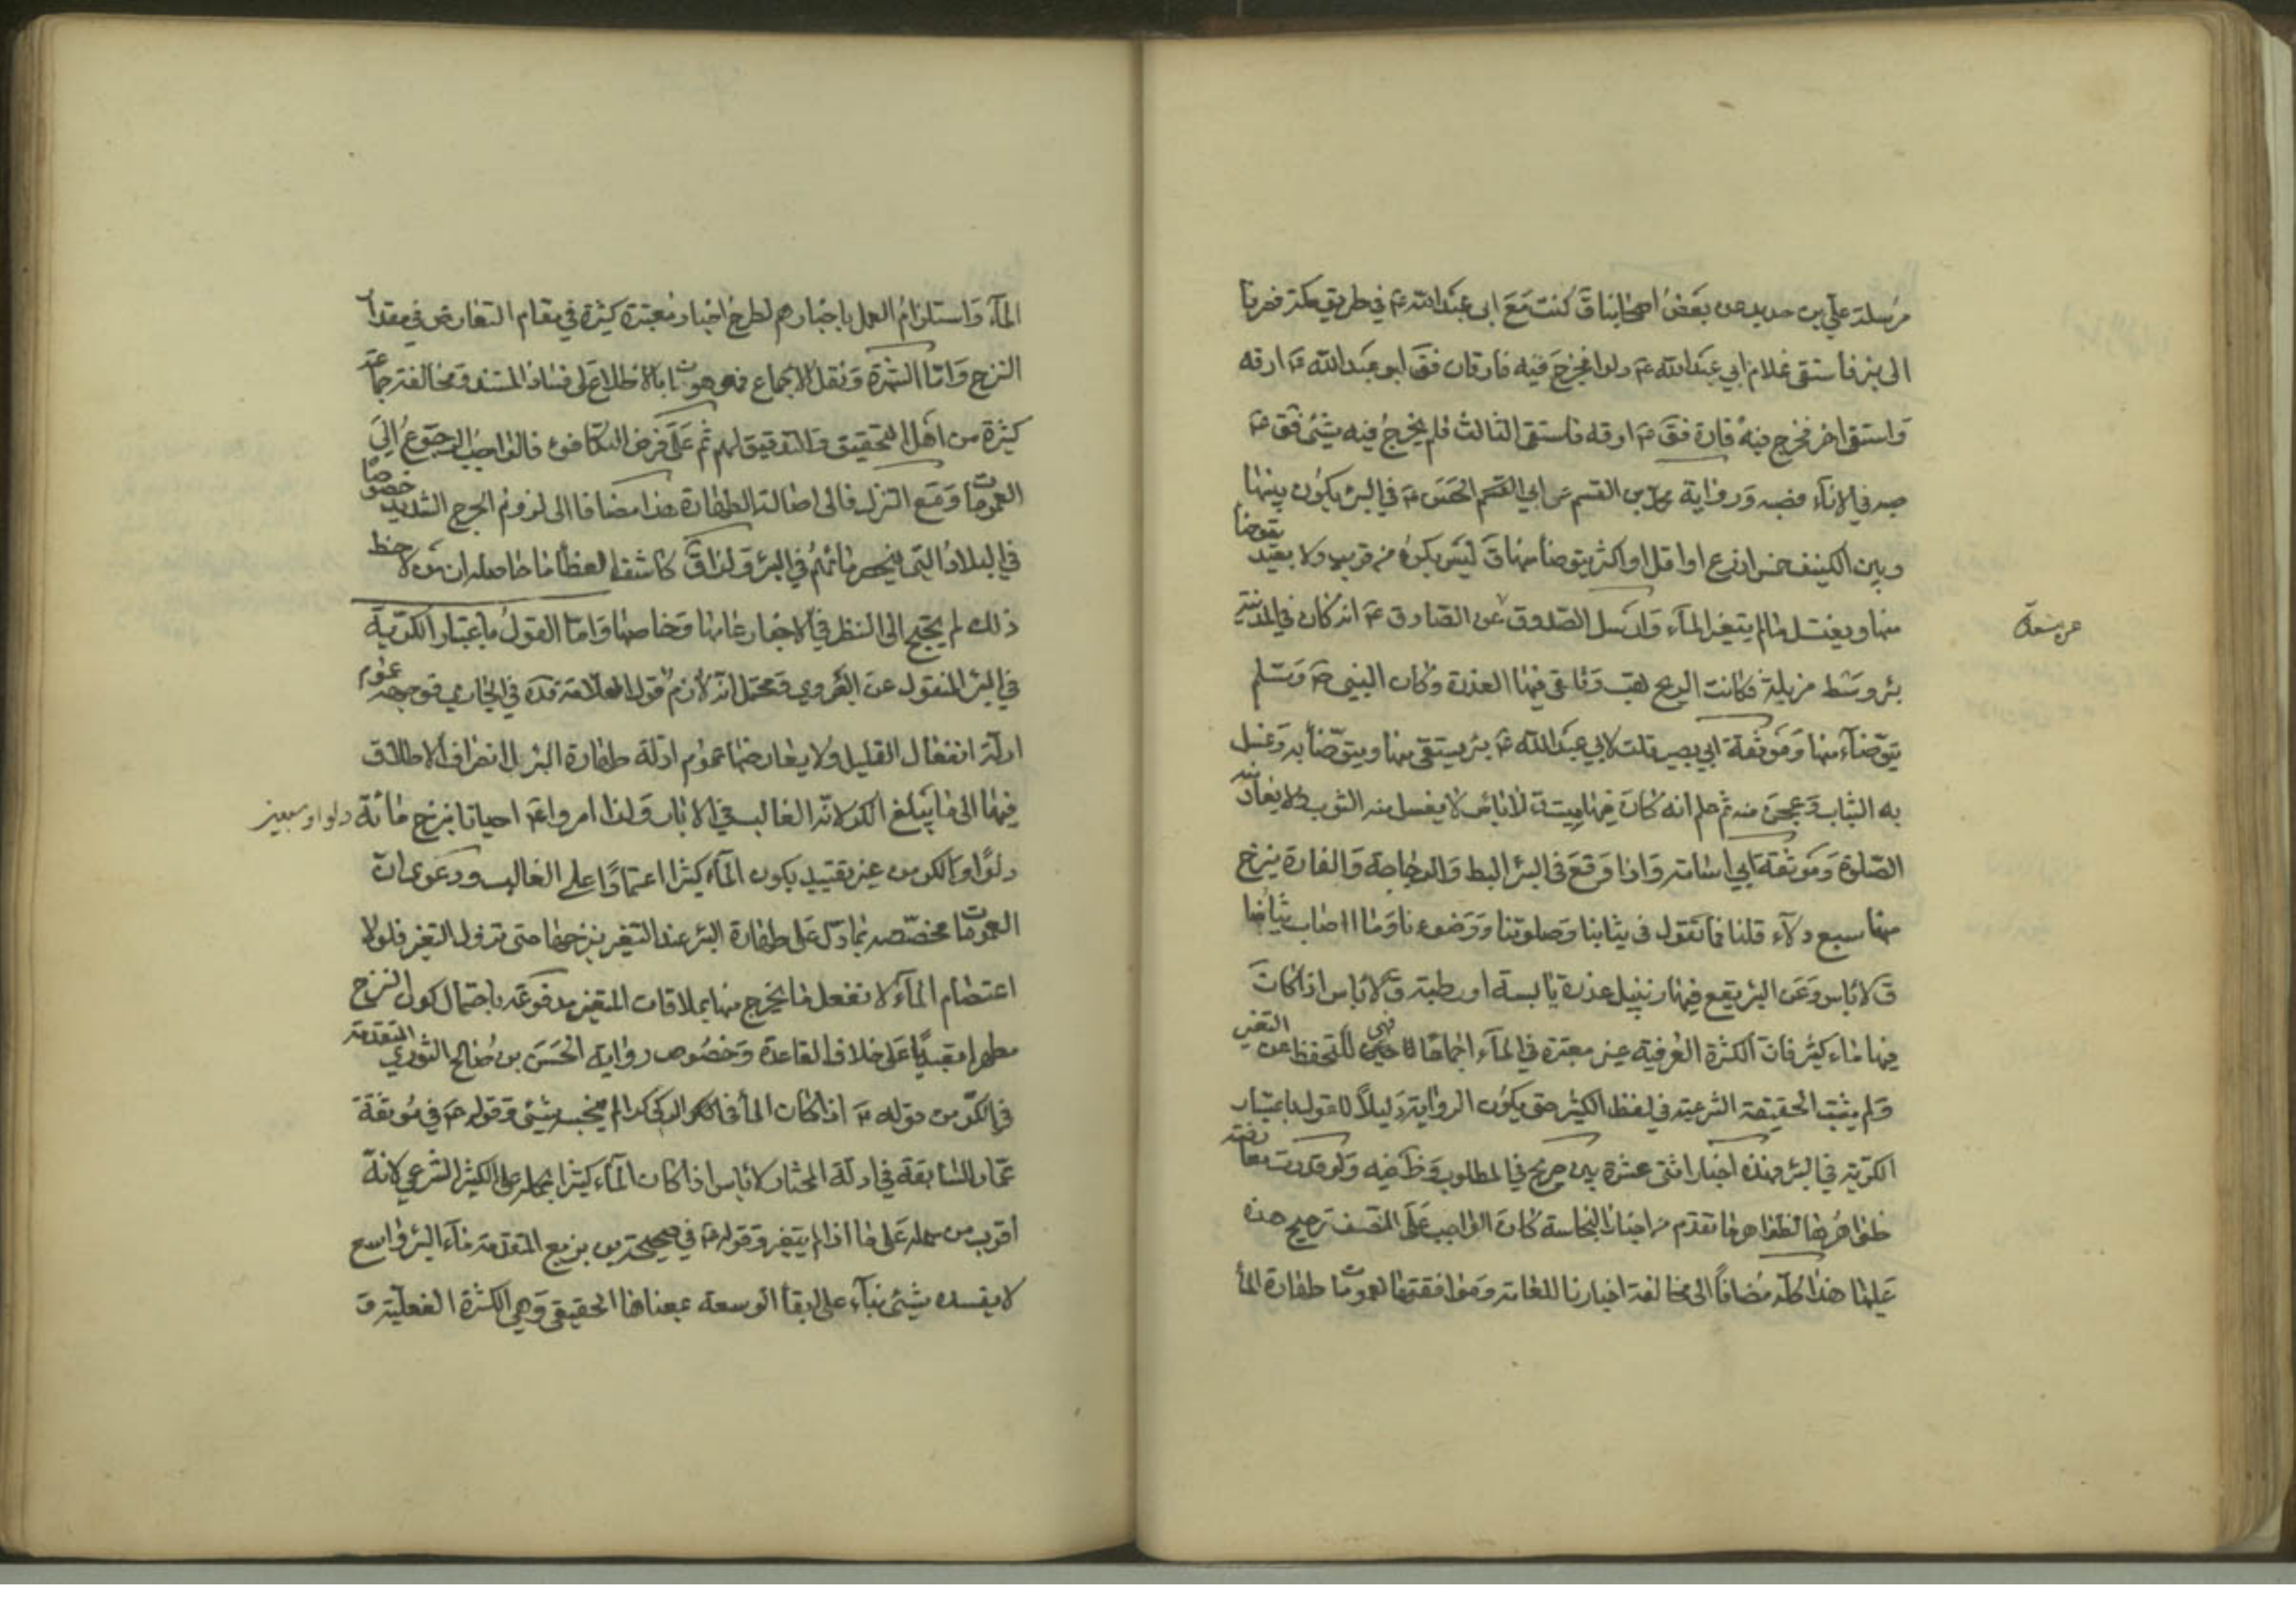 مرسلة علي بن حديد عن بعض اصحابنا ق كنت مع ابي عبد الله ع في طريق مكة فصرنا
الى بئر فاستقى غلام ابي عبد الله ع دلوا فخرج فيه فارتان فق ابو عبد الله ع ارقه
واستقى اخر فخرج فيه فارة فق ع ارقه فاستقى الثالث فلم يخرج فيه شئ فق ع
صبه في الاناء فصبه ورواية محمد بن القسم عن ابي الحسن ع في البئر يكون بينها
وبين الكنيف خمس اذرع او اقل او اكثر يتوضأ منها ق ليس يكره من قرب ولا بعد يتوضأ
منها ويغتسل ما لم يتغير الماء وارسل الصدوق عن الصادق ع انه كان في المدينة
بئر وسط مزبلة فكانت الريح تهب وتلقى فيها العذرة وكان النبي ص وسلم
يتوضاء منها وموثقة ابي بصير قلت لابي عبد الله ع بئر يستقى منها ويتوضأ به وغسل
به الثياب وعجن منه ثم علم انه كان فيها ميتة ق لا باس لا يغسل منه الثوب ولا يعاد منه
الصلوة وموثقة ابي اسامة واذا وقع في البئر البط والدجاجة والفارة ينزح
منها سبع دلاء قلنا فما تقول في ثيابنا وصلوتنا ووضوءنا وما اصاب ثيابنا
ق لا باس وعن البئر يقع فيها زنبيل عذرة يابسة او رطبة ق لا باس اذا كانت
فيها ماء كثير فان الكثرة العرفية غير معتبرة في الماء اجماعا فهي للتحفظ عن التغير
ولم يثبت الحقيقة الشرعية في لفظ الكثير حتى يكون الرواية دليلا للقول باعتبار
الكرية في البئر فهذه اخبار اثنى عشرة بين صريح في المطلوب وظ فيه ولو فرضت معارضة
ظواهرها لظواهر ما تقدم من اخبار النجاسة كان الواجب على المنصف ترجيح هذه
عليها هذا كله مضافا الى مخالفة اخبارنا للعامة وموافقتها لعمومات طهارة الماء
الماء واستلزام العمل باخبارهم لطرح اخبار معتبرة كثيرة في مقام التعارض في مقدار
النزح واما الشهرة ونقل الاجماع فموهونان بالاطلاع على فساد المستند ومخالفة جماعة
كثيرة من اهل التحقيق والتدقيق لهم ثم على فرض التكافوء فالواجب الرجوع الى
العمومات ومع التنزل فالى اصالة الطهارة هذا مضافا الى لزوم الحرج الشديد خصوصا
في البلاد التي ينحصر مائهم في البئر ولذا ق كاشف الغطاء ما حاصله ان من لاحظ
ذلك لم يحتج الى النظر في الاخبار عامها وخاصها واما القول باعتبار الكرية
في البئر المنقول عن البصروي ومحتمل انه لازم قول العلامة قده في الجاري فوجهه عموم
ادلة انفعال القليل ولا يعارضها عموم ادلة طهارة البئر لانصراف الاطلاق
فيها الى ما يبلغ الكر لانه الغالب في الابار ولذا امروا ع احيانا بنزح مائة دلو او سبعين
دلوا او الكر من غير تقييد بكون الماء كثيرا اعتمادا على الغالب ودعوى ان
العمومات مخصصه بما دل على طهارة البئر عند التغير بنزحها حتى تزول التغير فلولا
اعتصام الماء لانفعل ما يخرج منها بملاقات المتغير مدفوعة باحتمال كون النزح
مطهرا تعبديا على خلاف القاعدة وخصوص رواية الحسن بن صالح الثوري المتقدمة
في الكر من قوله ع اذا كان الماء في الركي كرا لم ينجسه شئ وقوله ع في موثقة
عمار السابقة في ادلة المختار لا باس اذا كان الماء كثيرا بحمله على الكثير الشرعي لانه
اقرب من حمله على ما اذا لم يتغير وقوله ع في صحيحة بن بزيع المتقدمة ماء البئر واسع
لا يفسده شئ بناء على ابقاء الوسعة بمعناها الحقيقي وهي الكثرة الفعلية و